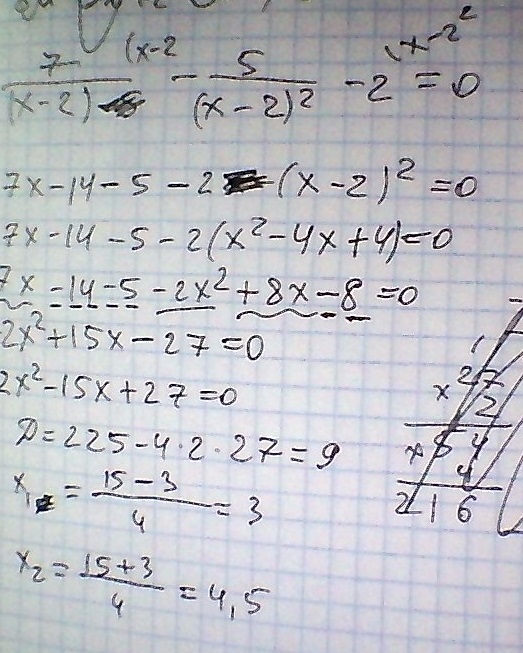 7/(x-2) (x-2 - 5/(x-2)² - 2 (x-2² = 0
7x-14-5-2(x-2)²=0
7x-14-5-2(x²-4x+4)=0
7x-14-5-2x²+8x-8=0
2x²+15x-27=0
2x²-15x+27=0
D=225-4·2·27=9
x₁=(15-3)/4=3
x₂=(15+3)/4=4,5
1
x 27
2
x 54
4
216